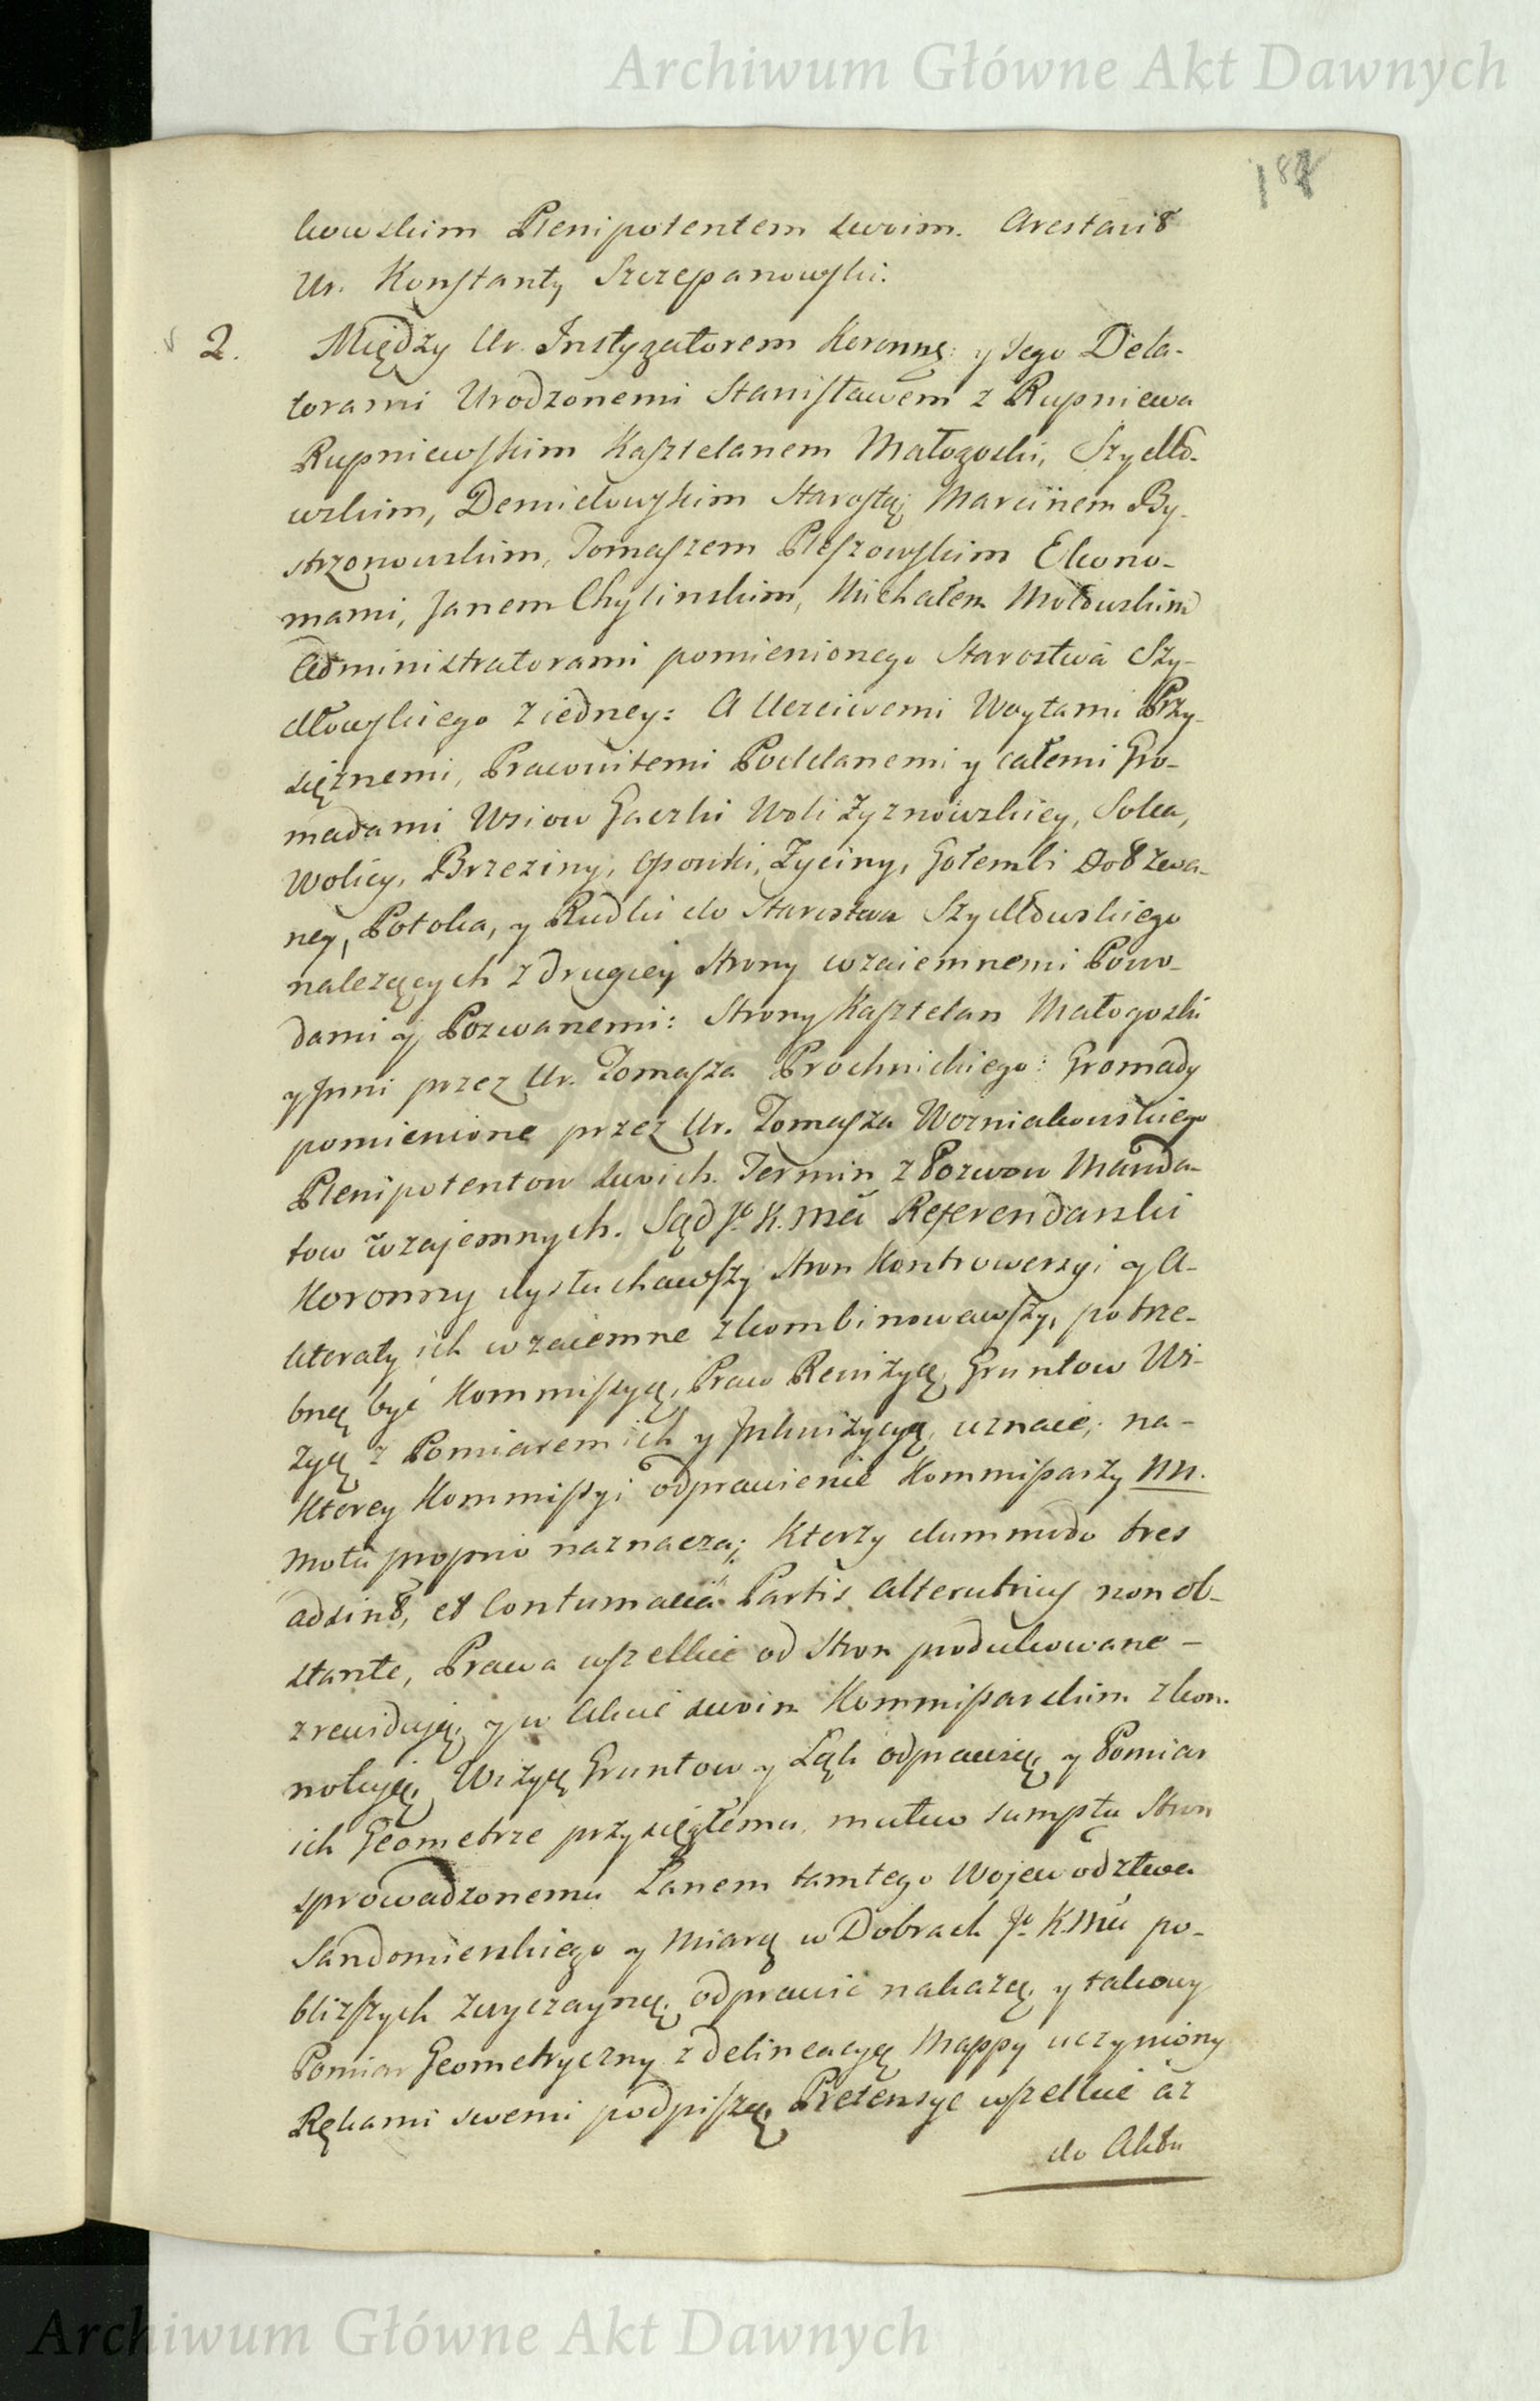 Archiwum Główne Akt Dawnych
kowskim Plenipotentem swoim. Arestavit
Ur. Konstanty Szczepanowski.
2. Między Ur. Instygatorem Koronnę: y Jego Dela-
torami Urodzonemi Stanisławem z Rupniewa
Rupniewskim Kasztelanem Małogoski, Szydło-
wskim, Starostą, Marcinem By-
strzonowskim, Tomaszem Pleszowskim Ekono-
mami, Janem Chylinskim, Michałem
Administratorami pomienionego Starostwa Szy-
dłowskiego z iedney: A Uczciwemi Woytami Przy-
siężnemi, Pracowitemi Poddanemi y całemi Gro-
madami Wsiow Gaczki Woli Zyznowskiey, Solca,
Wolicy, Brzeziny, Osowki, Zyciny, Gołembi
ney, Potoka, y Rudki do Starostwa Szydłowskiego
nalezących z drugiey Strony wzaiemnemi Powo-
dami y Pozwanemi: Strony Kasztelan Małogoski
y Jnni przez Ur. Tomasza Prochnickiego: Gromady
pomienione przez Ur. Tomasza Wozniakowskiego
Plenipotentow swoich. Termin z Pozwow Manda-
tow wzajemnych. Sąd Jo K. Mci Referendarski
Koronny wysłuchawszy Stron Kontrowersyi y A-
kteraty ich wzaiemne zkombinowawszy, potrze-
bną być Kommissyą, Praw Rewizyą, Gruntow Wi-
zyą z Pomiarem ich y Jnkwizycyą, uznaie; na-
Ktorey Kommissyi odprawienie Kommissarzy NN.
Motu proprio naznacza; Ktorzy dummodo tres
adsint, et Contumacia Partis alterutrius non ob-
stante, Prawa wszelkie od Stron produkowane –
zrewidują, y w Akcie swoim Kommissarskim zkon-
notują, Wizyą Gruntow y Łąk odprawią, y Pomiar
ich Geometrze przysięgłemu, mutuo sumptu Stron
sprowadzonemu Łanem tamtego Wojewodztwa
Sandomierskiego y Miarą w Dobrach Jo K Mci po-
blizszych zwyczayną, odprawić nakazą, y takowy
Pomiar Geometryczny z delineacyą Mappy uczyniony
Rękami swemi podpiszą, Pretensye wszelkie az
do Aktu
Archiwum Główne Akt Dawnych